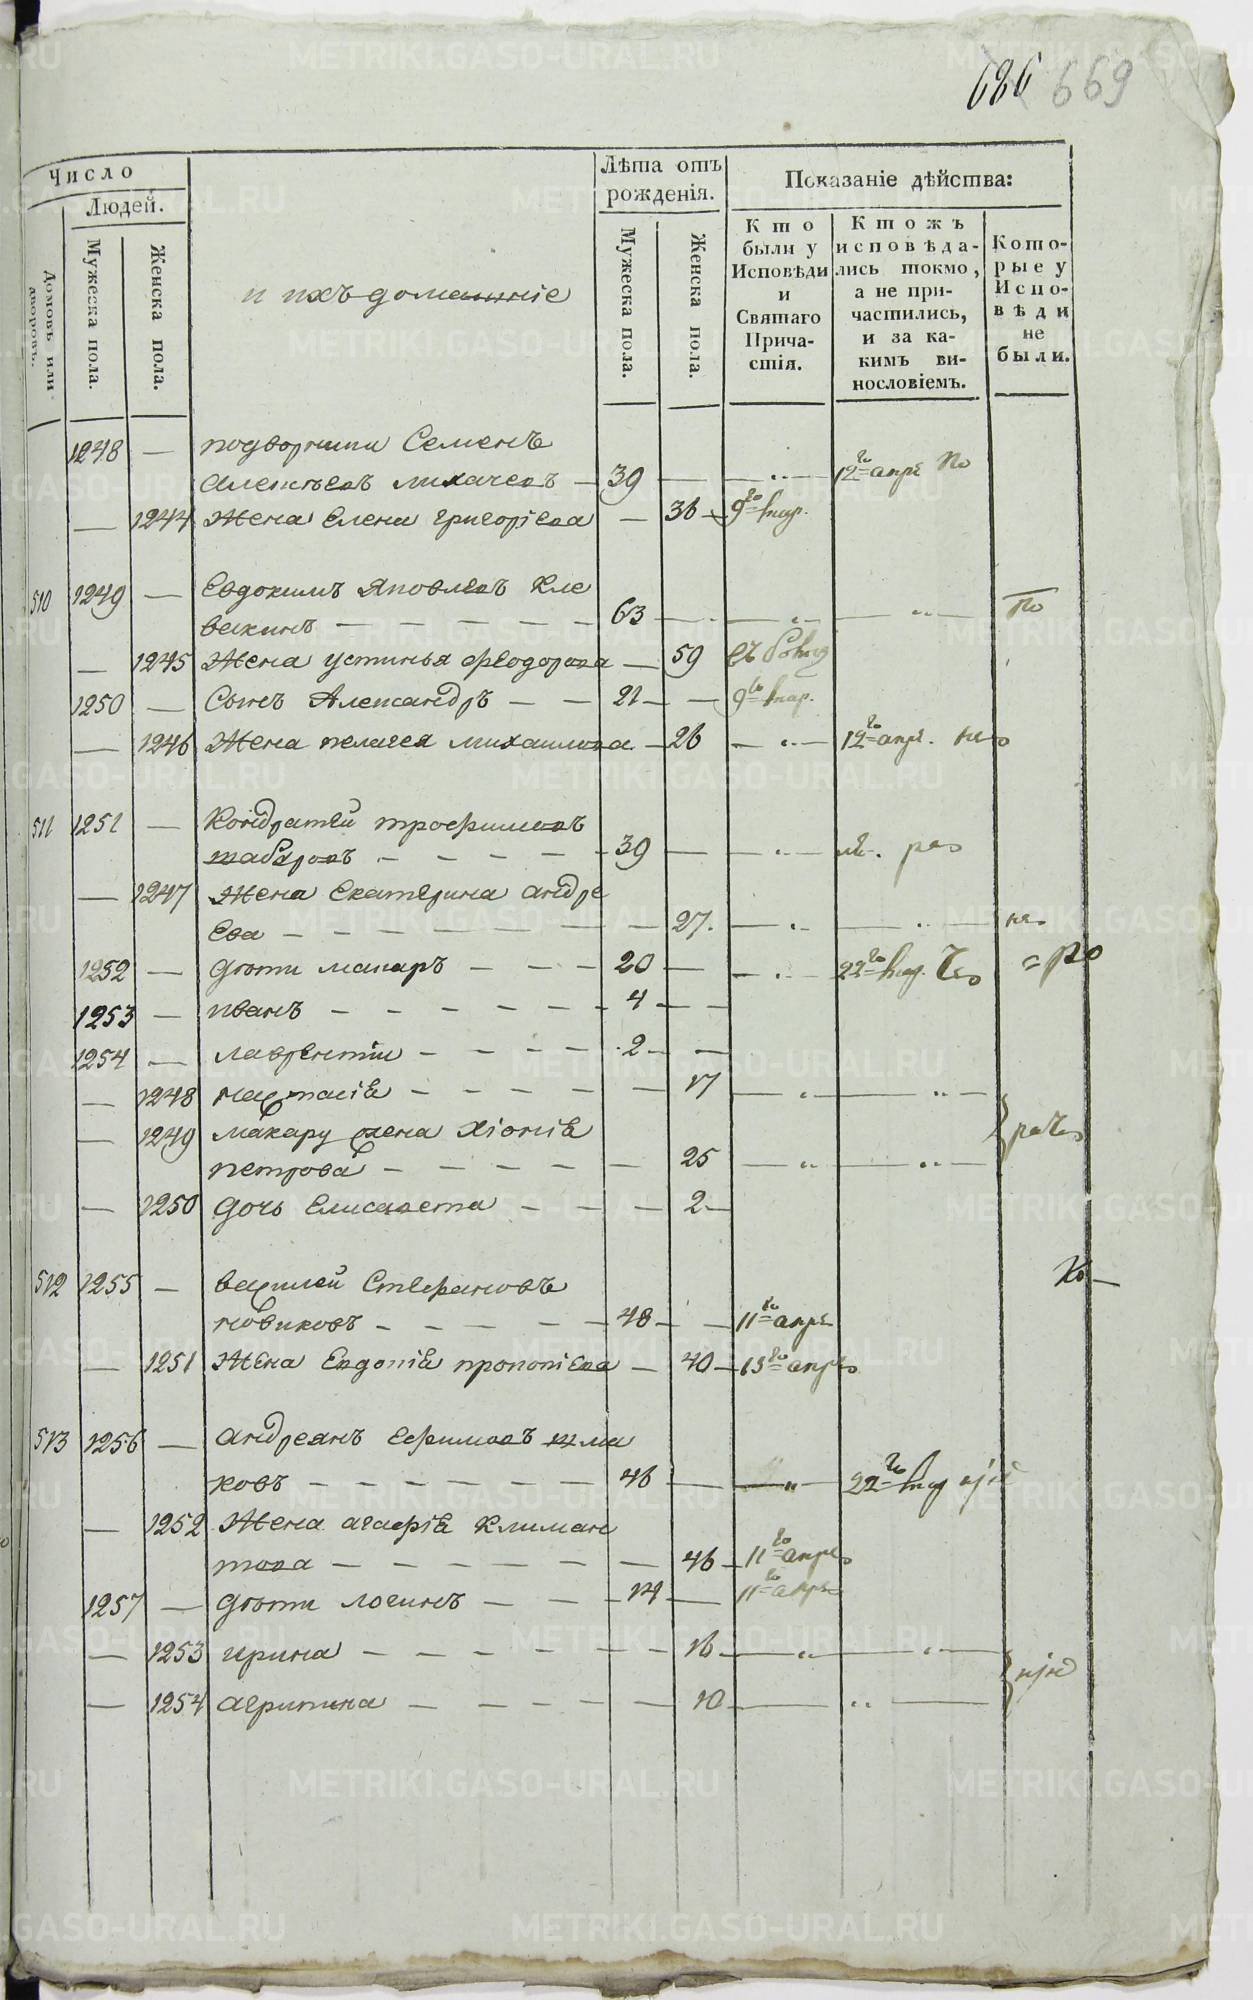 686 669
Число
Людей.
Домовъ или дворовъ.
Мужеска пола.
Женска пола.
и ихъ домашніе
Лѣта отъ рожденія.
Мужеска пола.
Женска пола.
Показаніе дѣйства:
Кто были у Исповѣди и Святаго Причастія.
Ктожъ исповѣдались токмо, а не причастились, и за какимъ винословіемъ.
Которые у Исповѣди не были.
1248 — Семенъ
Алексѣевъ лихачевъ — 39 — — 12го апре по
— 1244 Жена Елена григорiева — 36 — 9го
510 1249 — Евдокимъ Яковлевъ Кле
вакинъ — 63 — по
— 1245 Жена устинья феодорова — 59
1250 — Сынъ Александръ — 21 — 9го
— 1246 Жена пелагея михаилова — 26 — 12го апре.
511 1251 — Кондратей трофимовъ
табаровъ — 39 —
— 1247 Жена Екатерина андре
ева — 27.
1252 — дѣти макаръ — 20 — 22го
1253 — иванъ — 4 —
1254 — лаврентiи — 2 —
— 1248 настасiя — 17
— 1249 макару жена Хiонiя
петрова — 25
— 1250 дочь Елисавета — 2 —
512 1255 — василей Стефановъ
новиковъ — 48 — 11го апре
— 1251 Жена Евдокiя прокопiева — 40 — 13го апре
513 1256 — андреянъ ефимовъ
ковъ — 46 — 22го
— 1252 Жена агафiя Климан
това — 46 — 11го апре
1257 — дѣти логинъ — 14 — 11го апре
— 1253 ирина — 16 —
— 1254 агрипина — 10 —
METRIKI.GASO-URAL.RU